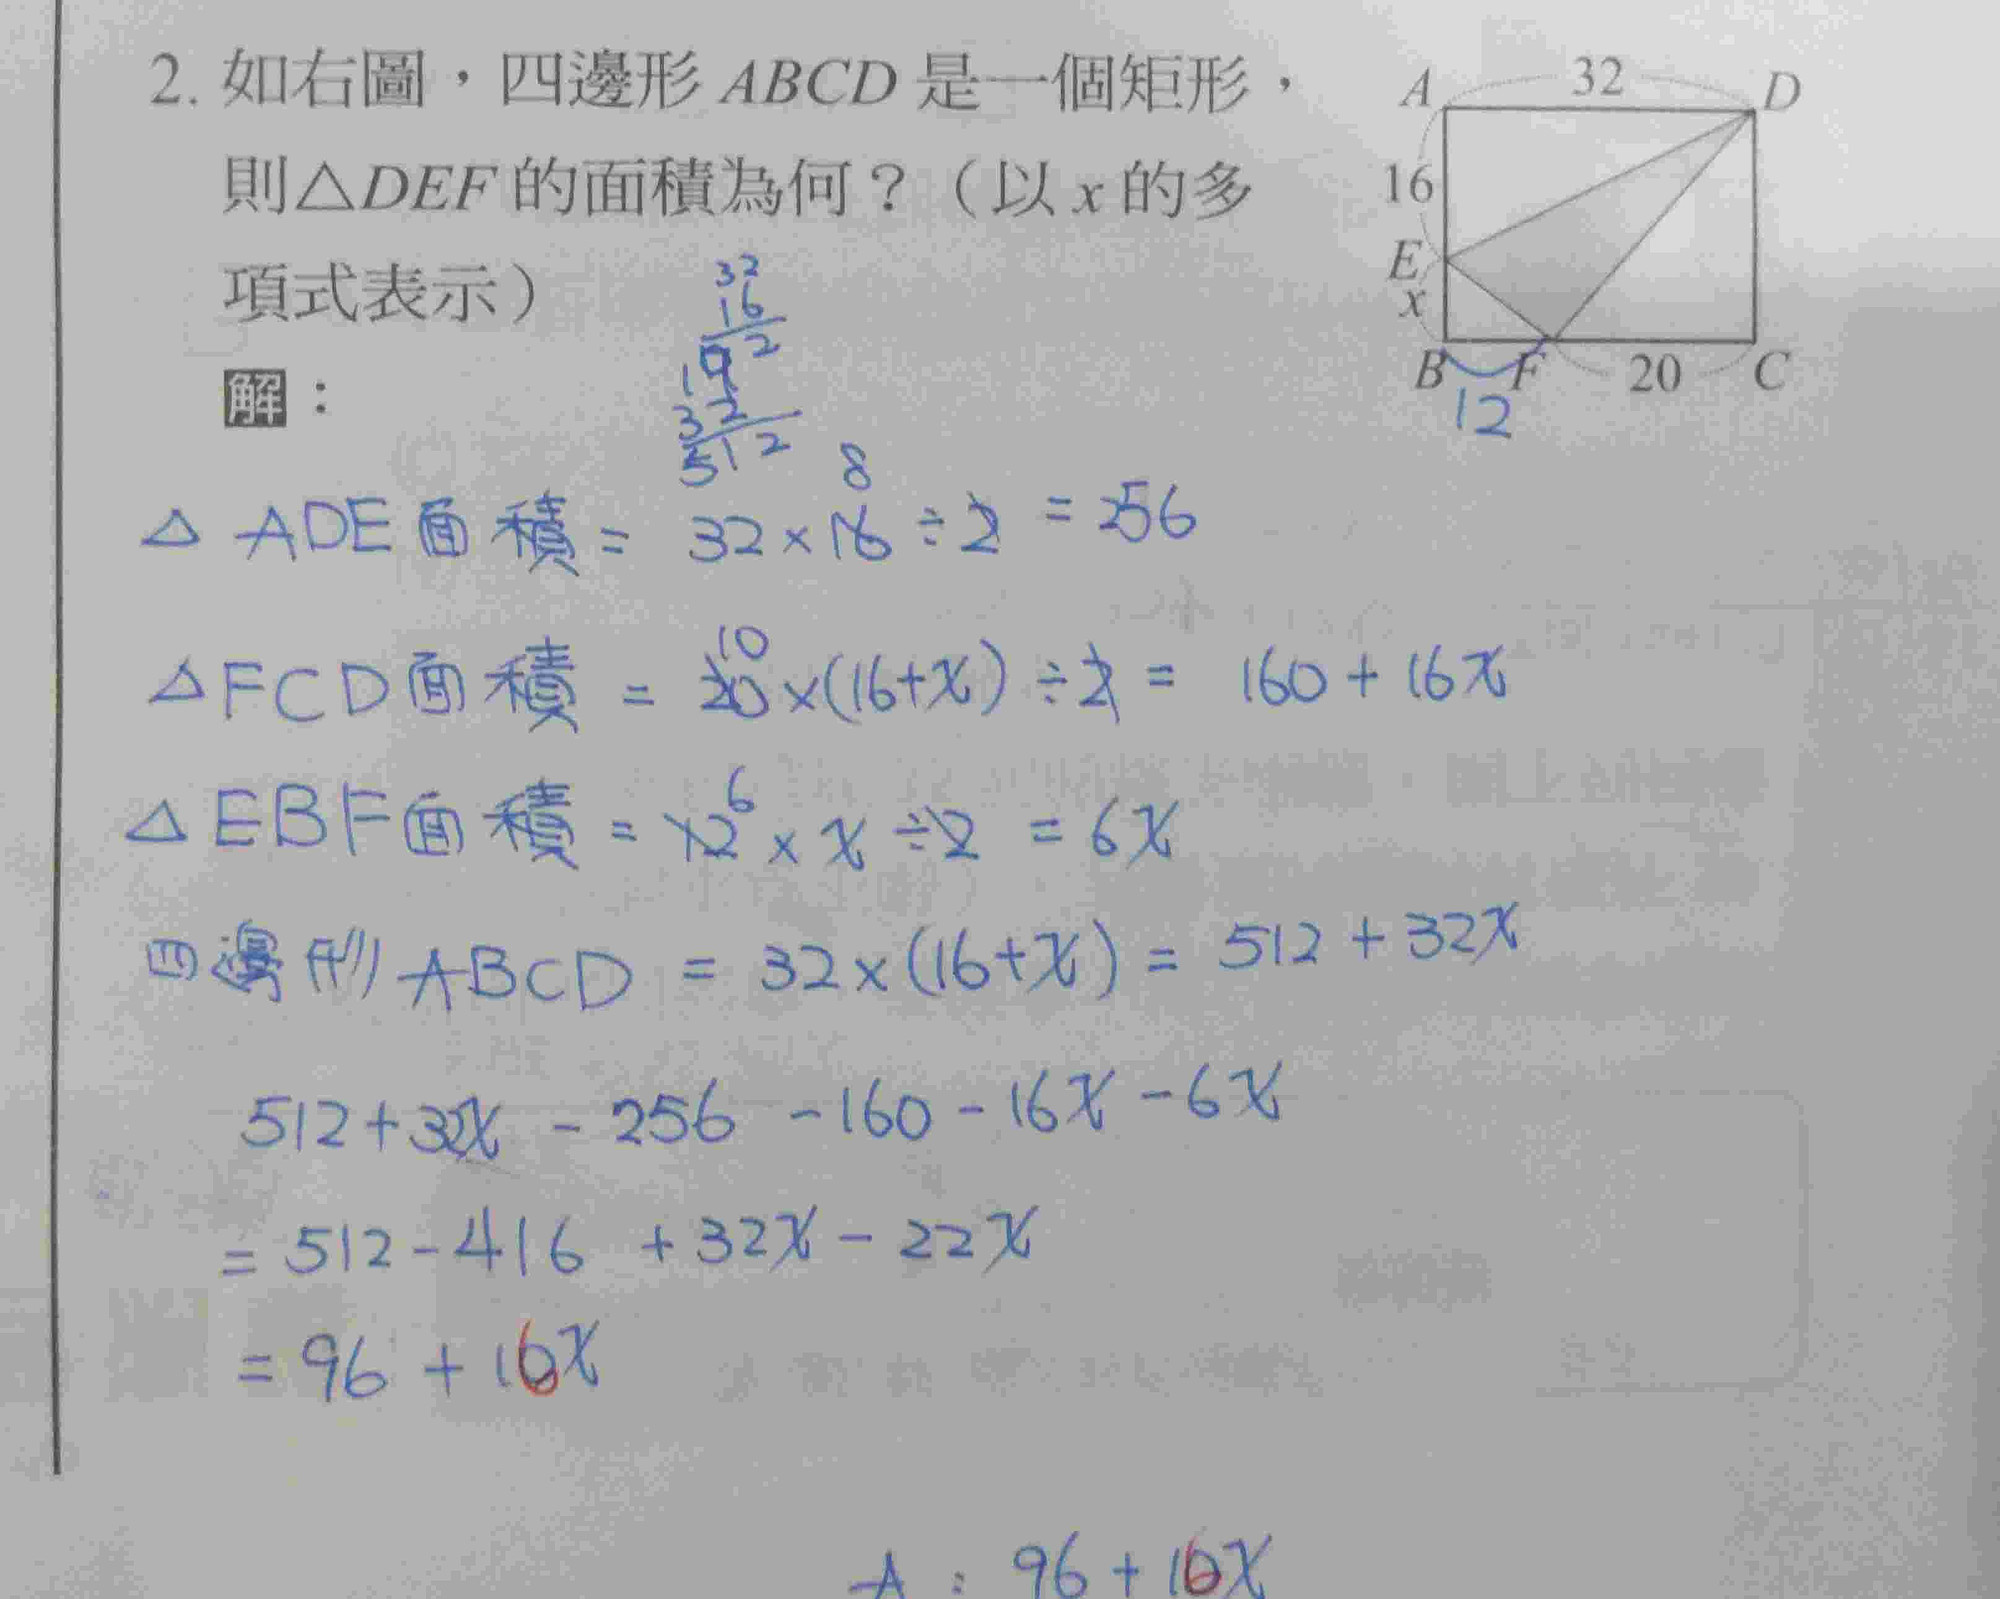 2. 如右圖，四邊形 ABCD 是一個矩形，
則△DEF 的面積為何？（以 x 的多
項式表示）
A 32 D
16
E
x
B F 20 C
12
解：
32
16
192
32
512
8
△ ADE面積 = 32 × 16 ÷ 2 = 256
10
△FCD面積 = 20 ×(16+x) ÷ 2 = 160 + 16x
6
△EBF面積 = 12 × x ÷ 2 = 6x
四邊形 ABCD = 32×(16+x) = 512 + 32x
512+32x - 256 - 160 - 16x - 6x
= 512 - 416 + 32x - 22x
= 96 + 16x
A : 96 + 16x